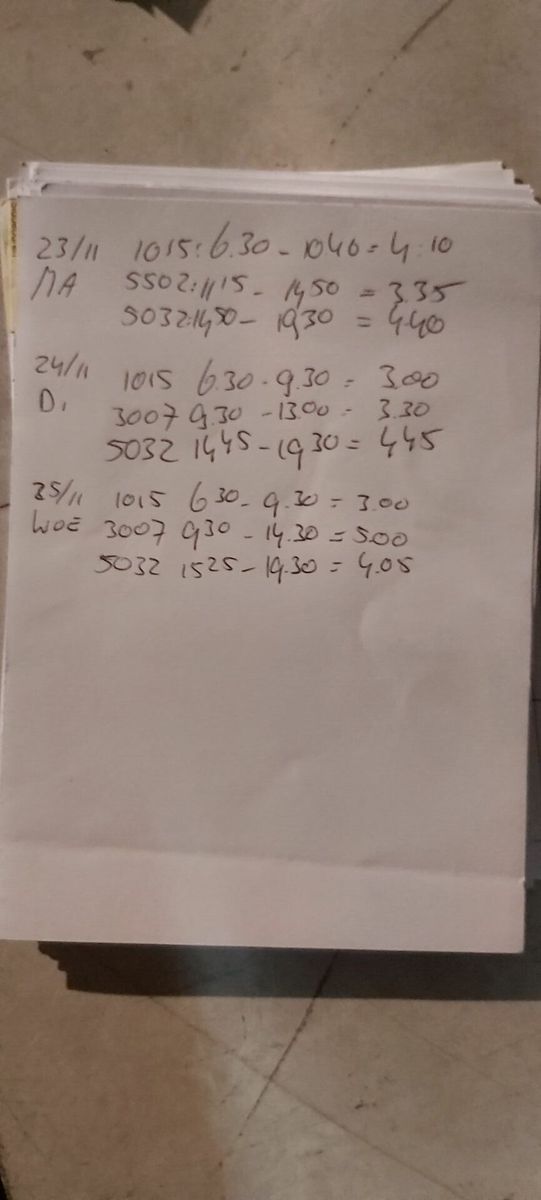 23/11 1015: 6.30 - 1040 = 4:10
MA 5502: 1115 - 1450 = 3.35
5032: 1450 - 1930 = 4.40
24/11 1015 6.30 - 9.30 = 3.00
DI 3007 9.30 - 13.00 = 3.30
5032 1445 - 1930 = 445
25/11 1015 630 - 9.30 = 3.00
WOE 3007 930 - 14.30 = 5.00
5032 1525 - 19.30 = 4.05